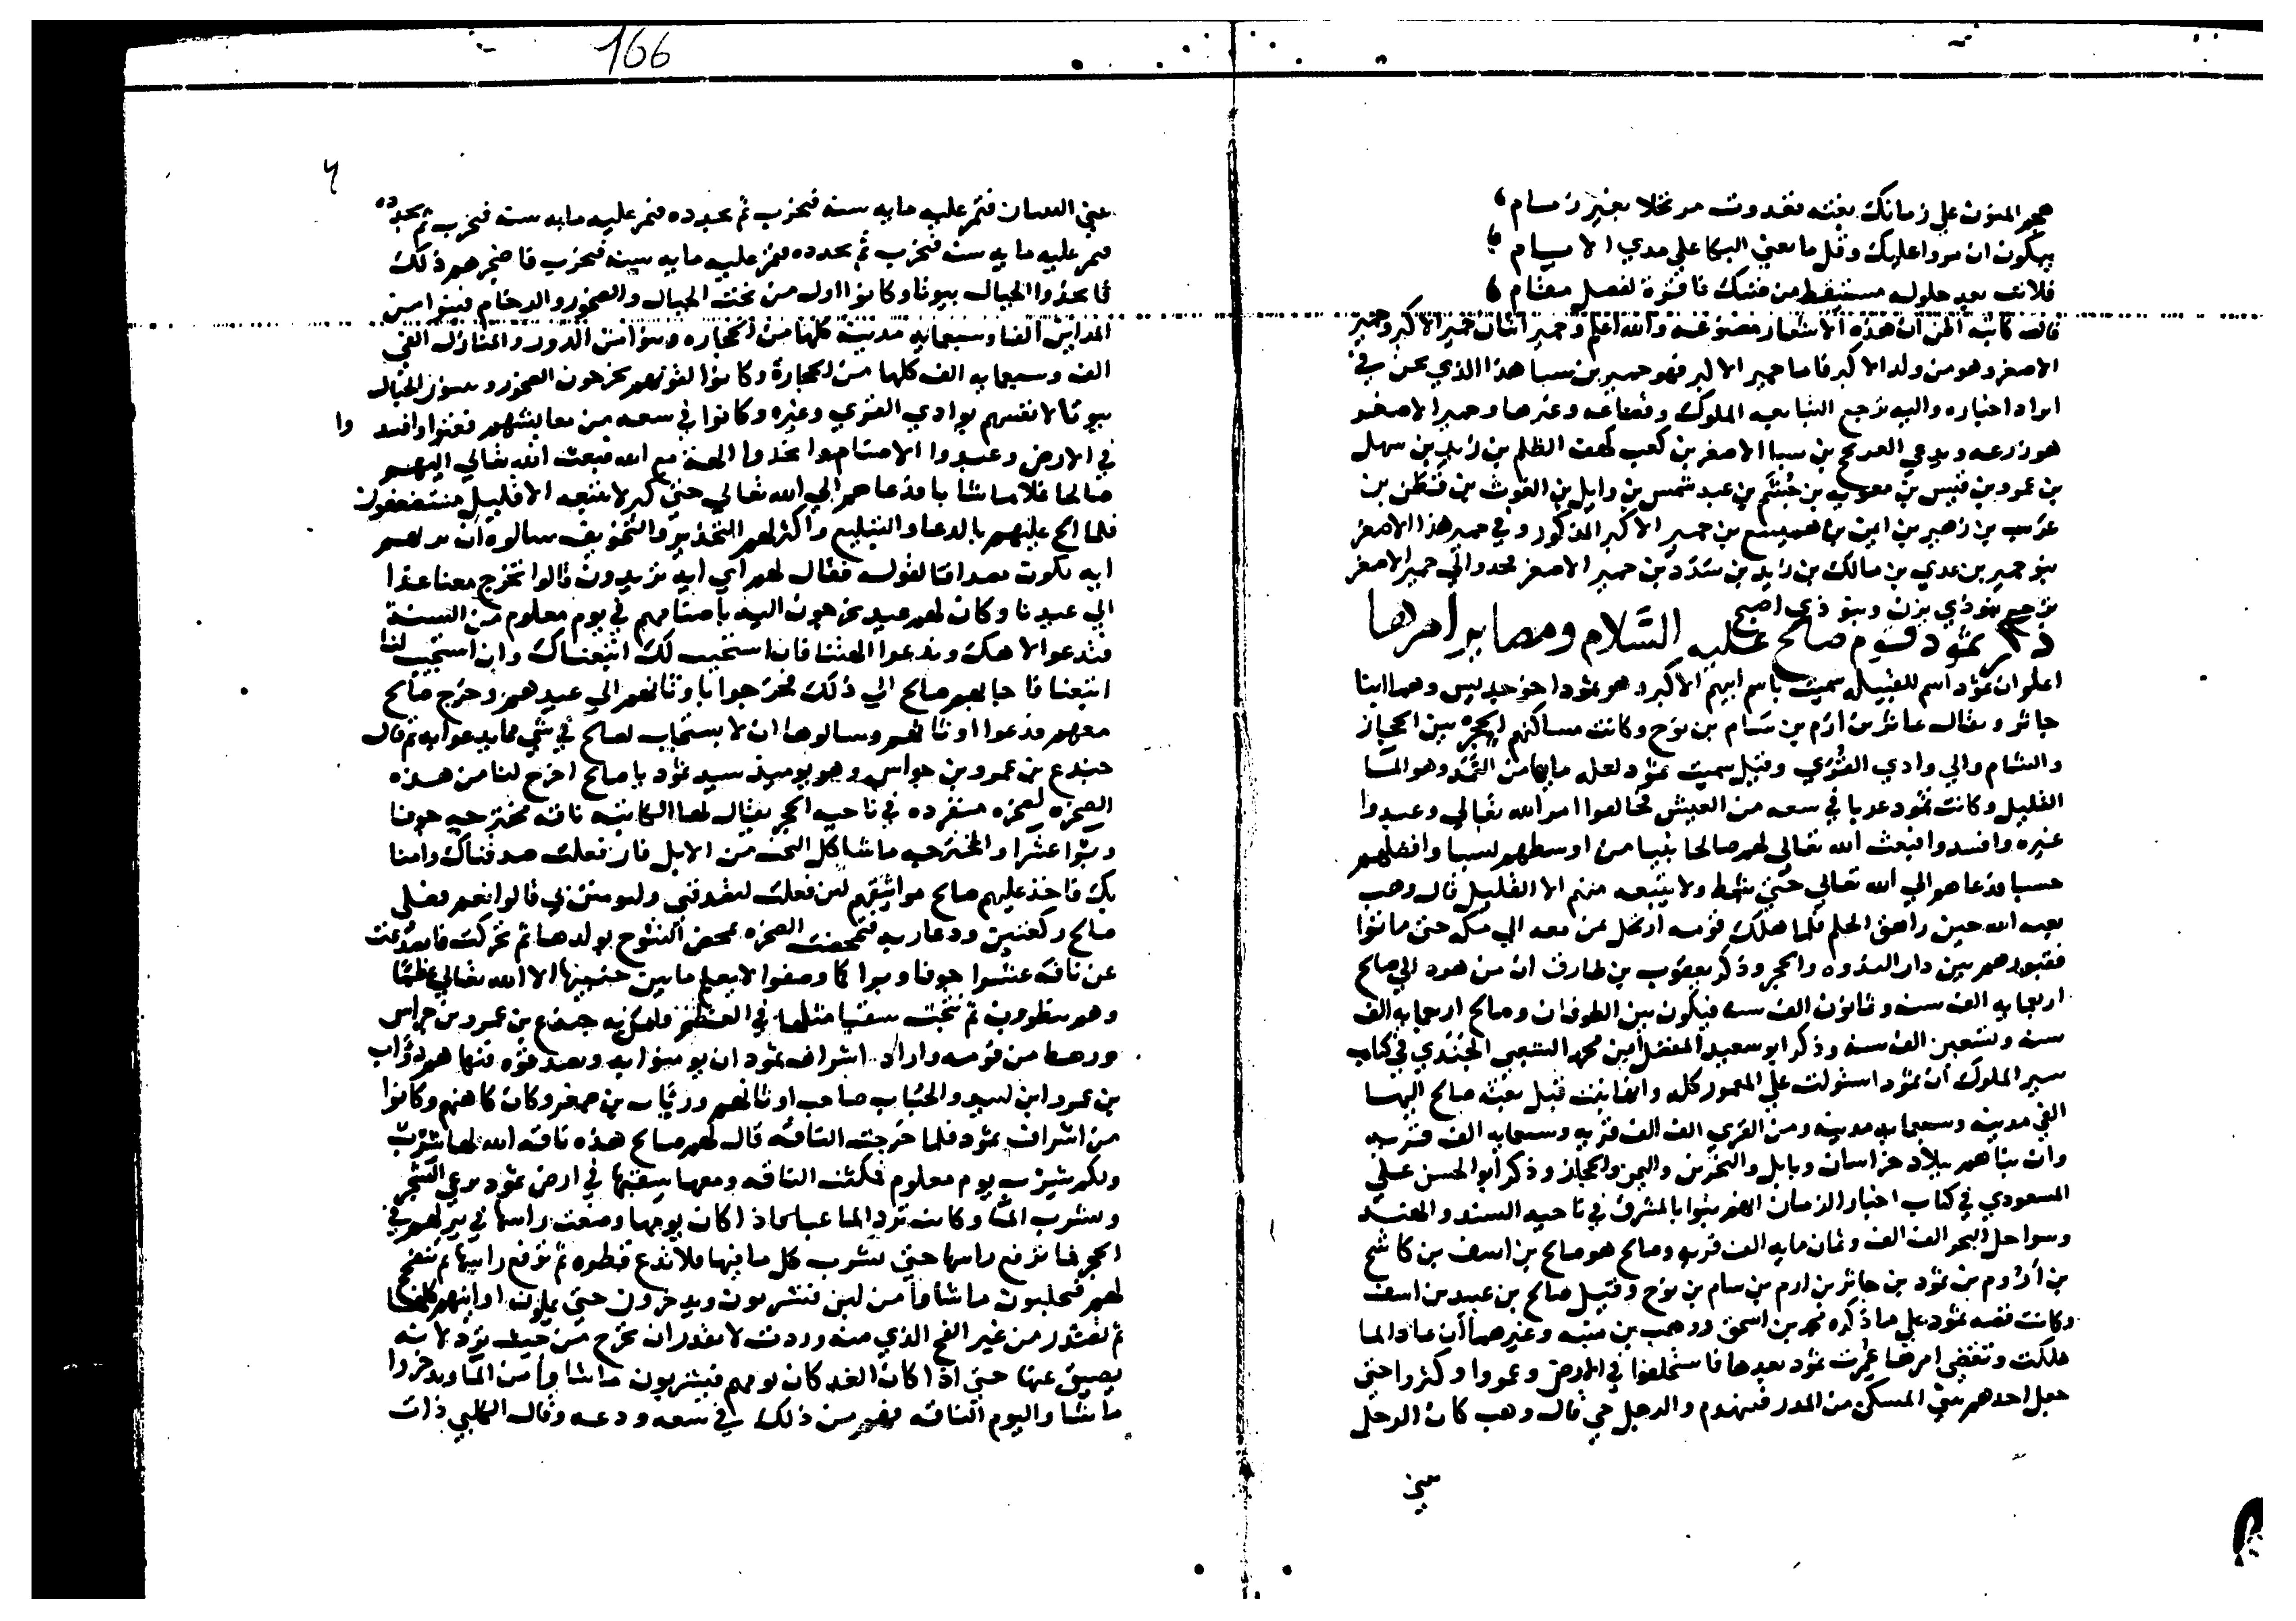 هجم المنون علي زمانك بغته فغدوت مرتحلا بغير زمام
يبكون ان مروا عليك وقل ما يغني البكا علي مدي الايام
فلانت بعد حلوله مستيقظ من
قالت كاتبه اظن ان هذه الاشعار مصنوعة والله اعلم وحمير اثنان حمير الاكبر وحمير
الاصغر وهو من ولد الاكبر فاما حمير الاكبر فهو حمير بن سبا هذا الذي نحن في
ايراد اخباره واليه ترجع التبابعه الملوك وقضاعه وغيرها وحمير الاصغر
هو زرعه ويدعي بن سبا الاصغر بن كعب كهف الظلم بن زيد بن سهل
بن عمرو بن قيس بن معويه بن جشم بن عبد شمس بن وايل بن الغوث بن قطن بن
عريب بن زهير بن ايمن بن هميسع بن حمير الاكبر المذكور وفي حمير هذا الاصغر
بنو حمير بن عدي بن مالك بن زيد بن سدد بن حمير الاصغر والي حمير الاصغر
يرجع بنو ذي يزن وبنو ذي اصبح
ذكر ثمود قوم صالح عليه السلام ومصاير امرها
اعلم ان ثمود اسم للقبيله سميت باسم ابيهم الاكبر وهو ثمود اخو جديس وهما ابنا
جاثر ويقال عاثر بن ارم بن سام بن نوح وكانت مساكنهم الحجر بين الحجاز
والشام والي وادي القري وقيل سميت ثمود لقله مايها من الثمد وهو الما
القليل وكانت ثمود عربا في سعه من العيش فخالفوا امر الله تعالي وعبدوا
غيره وافسدوا فبعث الله تعالي لهم صالحا نبيا من اوسطهم نسبا وافضلهم
حسبا فدعاهم الي الله تعالي حتي شمط ولا يتبعه منهم الا القليل قال وهب
بعثه الله حين راهق الحلم فلما هلك قومه ارتحل بمن معه الي مكه حتي ماتوا
فقبورهم بين دار الندوه والحجر وذكر يعقوب بن طارق ان من هود الي صالح
اربعمايه الف سنه وثمانون الف سنه فيكون بين الطوفان وصالح اربعمايه الف
سنه وتسعين الف سنه وذكر ابو سعيد المفضل بن محمد الشعبي الجندي في كتاب
سير الملوك ان ثمود استولت علي المعمور كله وانها بنت قبل بعثه صالح اليها
الفي مدينه وسبعمايه مدينه ومن القري الف الف قريه وسبعمايه الف قريه
وان بناهم ببلاد خراسان وبابل والبحرين واليمن والحجاز وذكر ابو الحسن علي
المسعودي في كتاب اخبار الزمان انهم بنوا بالمشرق في ناحيه السند والهند
وسواحل البحر الف الف وثمان مايه الف قريه وصالح هو صالح بن اسف بن كاشح
بن اروم بن ثمود بن جاثر بن ارم بن سام بن نوح وقيل صالح بن عبيد بن اسف
وكانت قصه ثمود علي ما ذكره محمد بن اسحق ووهب بن منبه وغيرهما ان عادا لما
هلكت وتقضي امرها عمرت ثمود بعدها فاستخلفوا في الارض وعمروا وكثروا حتي
جعل احدهم يبني المسكن من المدر فينهدم والرجل حي قال وهب كان الرجل
يبني
166
يبني البنيان فتمر عليه مايه سنه فيخرب ثم يجدده فتمر عليه مايه سنه فيخرب ثم يجدده
فتمر عليه مايه سنه فيخرب ثم يجدده فتمر عليه مايه سنه فيخرب فاضجرهم ذلك
فاتخذوا الجبال بيوتا وكانوا اول من نحت الجبال والصخور والرخام فبنوا من
المداين الفا وسبعمايه مدينه كلها من الحجاره وبنوا من الدور والمنازل الفي
الف وسبعمايه الف كلها من الحجارة وكانوا لقوتهم يخرجون الصخور وينحتون الجبال
بيوتا لانفسهم بوادي القري وغيره وكانوا في سعه من معايشهم فعتوا وافسدوا
في الارض وعبدوا الاصنام واتخذوا الهة مع الله فبعث الله تعالي اليهم
صالحا غلاما شابا فدعاهم الي الله تعالي حتي كبر لا يتبعه الا قليل مستضعفون
فلما الح عليهم بالدعا والتبليغ واكثر لهم التحذير والتخويف سالوه ان يريهم
ايه تكون مصداقا لقوله فقال لهم اي ايه تريدون قالوا تخرج معنا غدا
الي عيدنا وكان لهم عيد يخرجون اليه باصنامهم في يوم معلوم من السنة
فتدعو الاهك وندعوا الهتنا فان استجيب لك اتبعناك وان استجيب لنا
اتبعتنا فاجابهم صالح الي ذلك فخرجوا باوثانهم الي عيدهم وخرج صالح
معهم فدعوا اوثانهم وسالوها ان لا يستجاب لصالح في شي مما يدعوا به ثم قال
جندع بن عمرو بن جواس وهو يوميذ سيد ثمود يا صالح اخرج لنا من هذه
الصخره لصخره منفرده في ناحيه الحجر يقال لها الكاثبه ناقه مخترجه جوفا
وبرا عشرا والمخترجه ما شاكل البخت من الابل فان فعلت صدقناك وامنا
بك فاخذ عليهم صالح مواثيقهم لين فعلت لتصدقني ولتومنن بي قالوا نعم فصلي
صالح ركعتين ودعا ربه فتمخضت الصخره تمخض النتوج بولدها ثم تحركت فانصدعت
عن ناقه عشرا جوفا وبرا كما وصفوا لا يعلم ما بين جنبيها الا الله تعالي عظما
وهم ينظرون ثم نتجت سقبا مثلها في العظم فامن به جندع بن عمرو بن جواس
ورهط من قومه واراد اشراف ثمود ان يومنوا به ويصدقوه فنهاهم ذواب
بن عمرو ابن لبيد والحباب صاحب اوثانهم ورباب بن صمعر وكان كاهنهم وكانوا
من اشراف ثمود فلما خرجت الناقه قال لهم صالح هذه ناقه الله لها شرب
ولكم شرب يوم معلوم فمكثت الناقه ومعها سقبها في ارض ثمود ترعي الشجر
وتشرب الما وكانت ترد الما غبا فاذا كان يومها وضعت راسها في بير لهم في
الحجر فما ترفع راسها حتي تشرب كل ما فيها فلا تدع قطره ثم ترفع راسها ثم تتفحج
لهم فيحلبون ما شاوا من لبن فيشربون ويدخرون حتي يملون اوانيهم كلها
ثم تصدر من غير الفج الذي منه وردت لا تقدر ان تخرج من حيث ترد لانه
يضيق عنها حتي اذا كان الغد كان يومهم فيشربون ما شاوا من الما ويدخروا
ما شاوا ليوم الناقه فهم من ذلك في سعه ودعه وقال الكلبي ذات